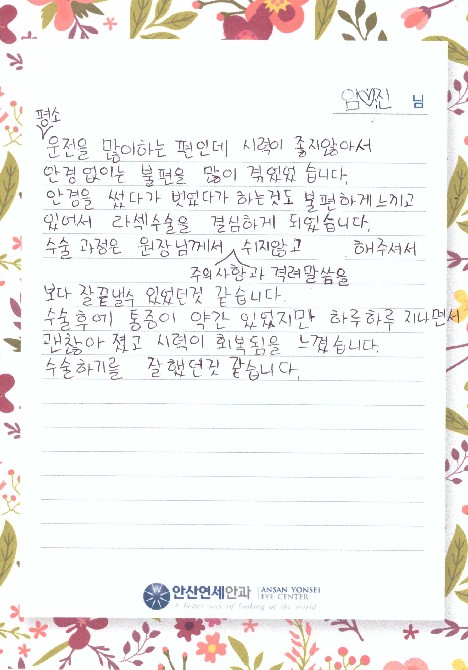 임♡진 님
평소
운전을 많이하는 편인데 시력이 좋지않아서
안경없이는 불편을 많이 겪었었습니다.
안경을 썼다가 벗었다가 하는것도 불편하게느끼고
있어서 라섹수술을 결심하게 되었습니다.
수술 과정은 원장님께서 쉬지않고 해주셔서
주의사항과 격려말씀을
보다 잘끝낼수 있었던것 같습니다.
수술후에 통증이 약간 있었지만 하루하루 지나면서
괜찮아 졌고 시력이 회복됨을 느꼈습니다.
수술하기를 잘했던것 같습니다.
안산연세안과 ANSAN YONSEI EYE CENTER
A better way of looking at the world